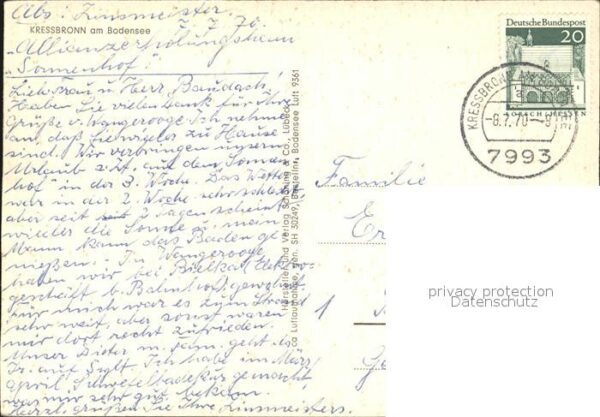 Abs: Zinsmeister,
7.7.70.
KRESSBRONN am Bodensee
"Allianzerholungsheim
"Sonnenhof"
Liebe Frau u Herr Baudach,
Haben Sie vielen Dank für Ihre
Grüße v. Wangerooge. Ich nehme
an, daß Sie wieder zu Hause
sind. Wir verbringen unseren
Urlaub z. Zt. auf dem Sonnen
hof" in der 3. Woche. Das Wetter
war in der 2. Woche sehr schlecht
aber seit 2 Tagen scheint
wieder die Sonne u. mein
Mann kann das Baden ge
nießen. In Wangerooge
haben wir bei
geschäft b. Bahnhof gewohnt
Für mich war es zum Strand
sehr weit, aber sonst waren
wir dort recht zufrieden.
Unser Dieter m. Fam. geht es
auf Sylt. Ich habe im März
April Schwefelbadekur gemacht
war mir sehr gut bekom.
Herzl. grüßen Sie Ihre Zinsmeisters.
Hersteller und Verlag Schöning & Co., Lübeck
Luftaufnahme, Bodensee Luft 9361
Deutsche Bundespost
20
LORSCH/HESSEN
KRESSBRONN
a
-8.7.70-9
7993
Familie
Er
1
Ge
privacy protection
Datenschutz